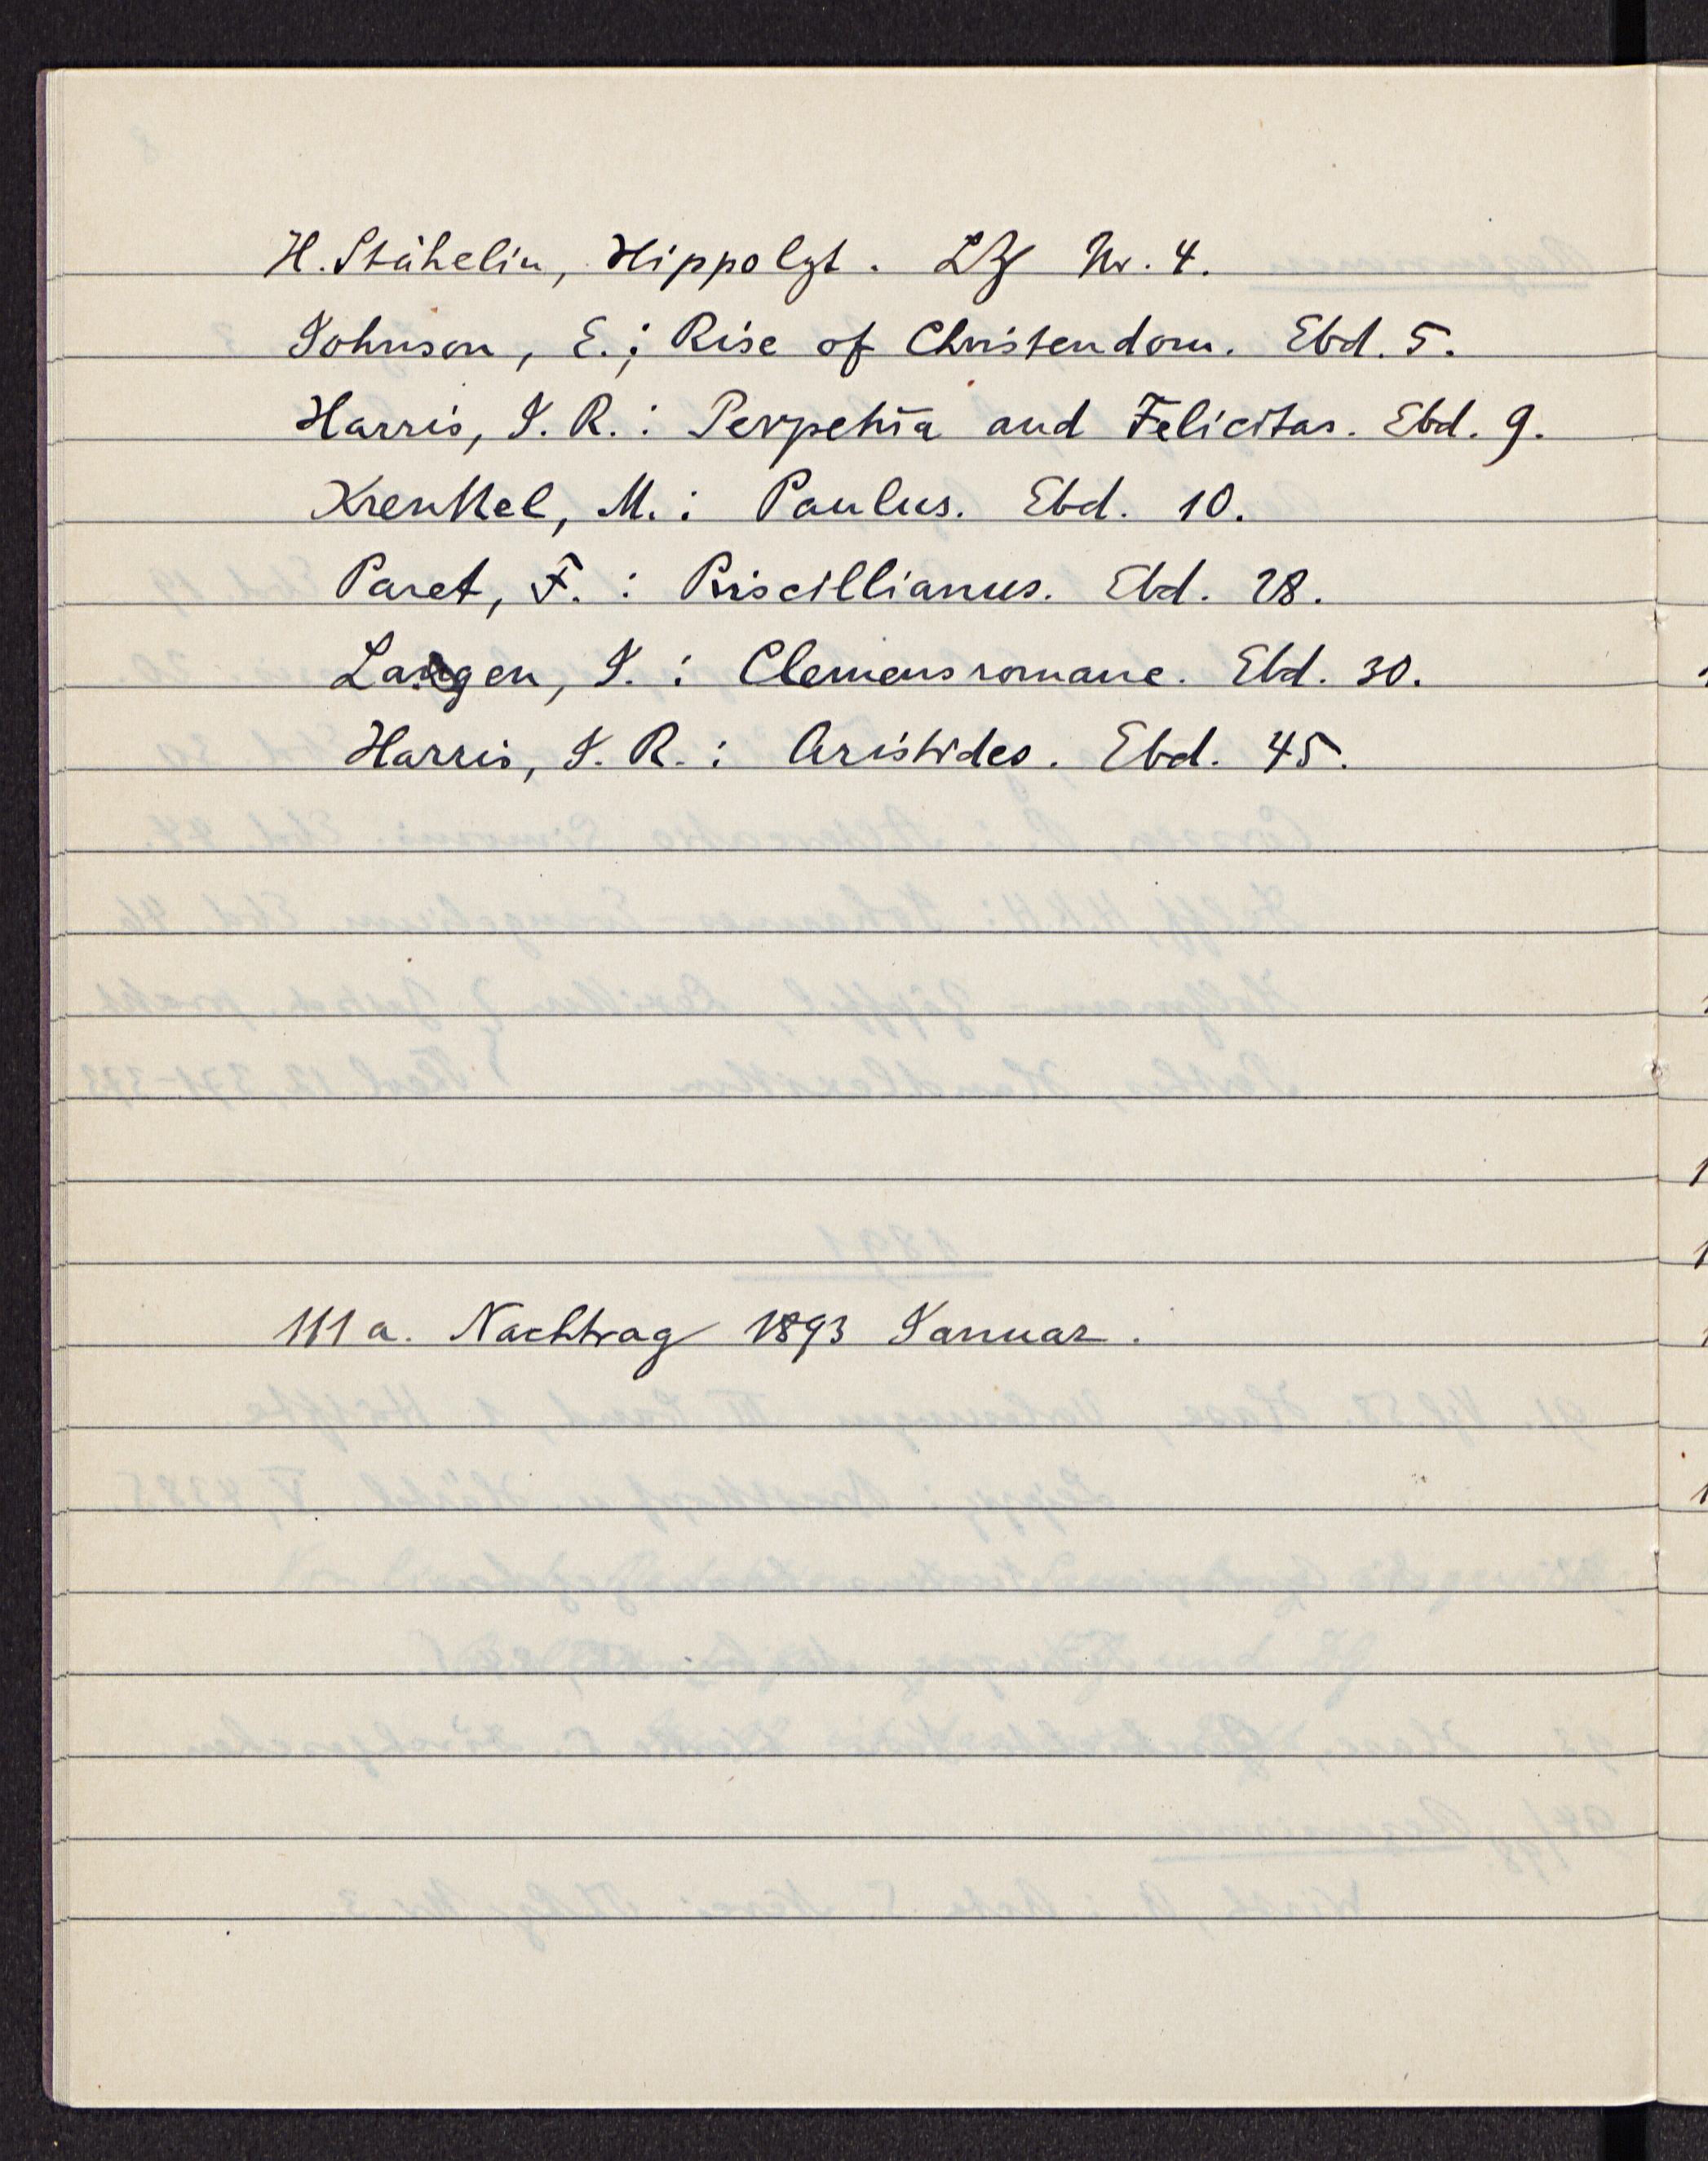 H. Stähelin, Hippolyt. LZ Nr. 4.
Johnson, E.; Rise of Christendom. Ebd. 5.
Harris, J. R.: Perpetŭa and Felicitas. Ebd. 9.
Krenkel, M.: Paulus. Ebd. 10.
Paret, F.: Priscillianus. Ebd. 28.
Langen, J.: Clemensromane. Ebd. 30.
Harris, J. R.: Aristides. Ebd. 45.
111a. Nachtrag 1893 Januar.